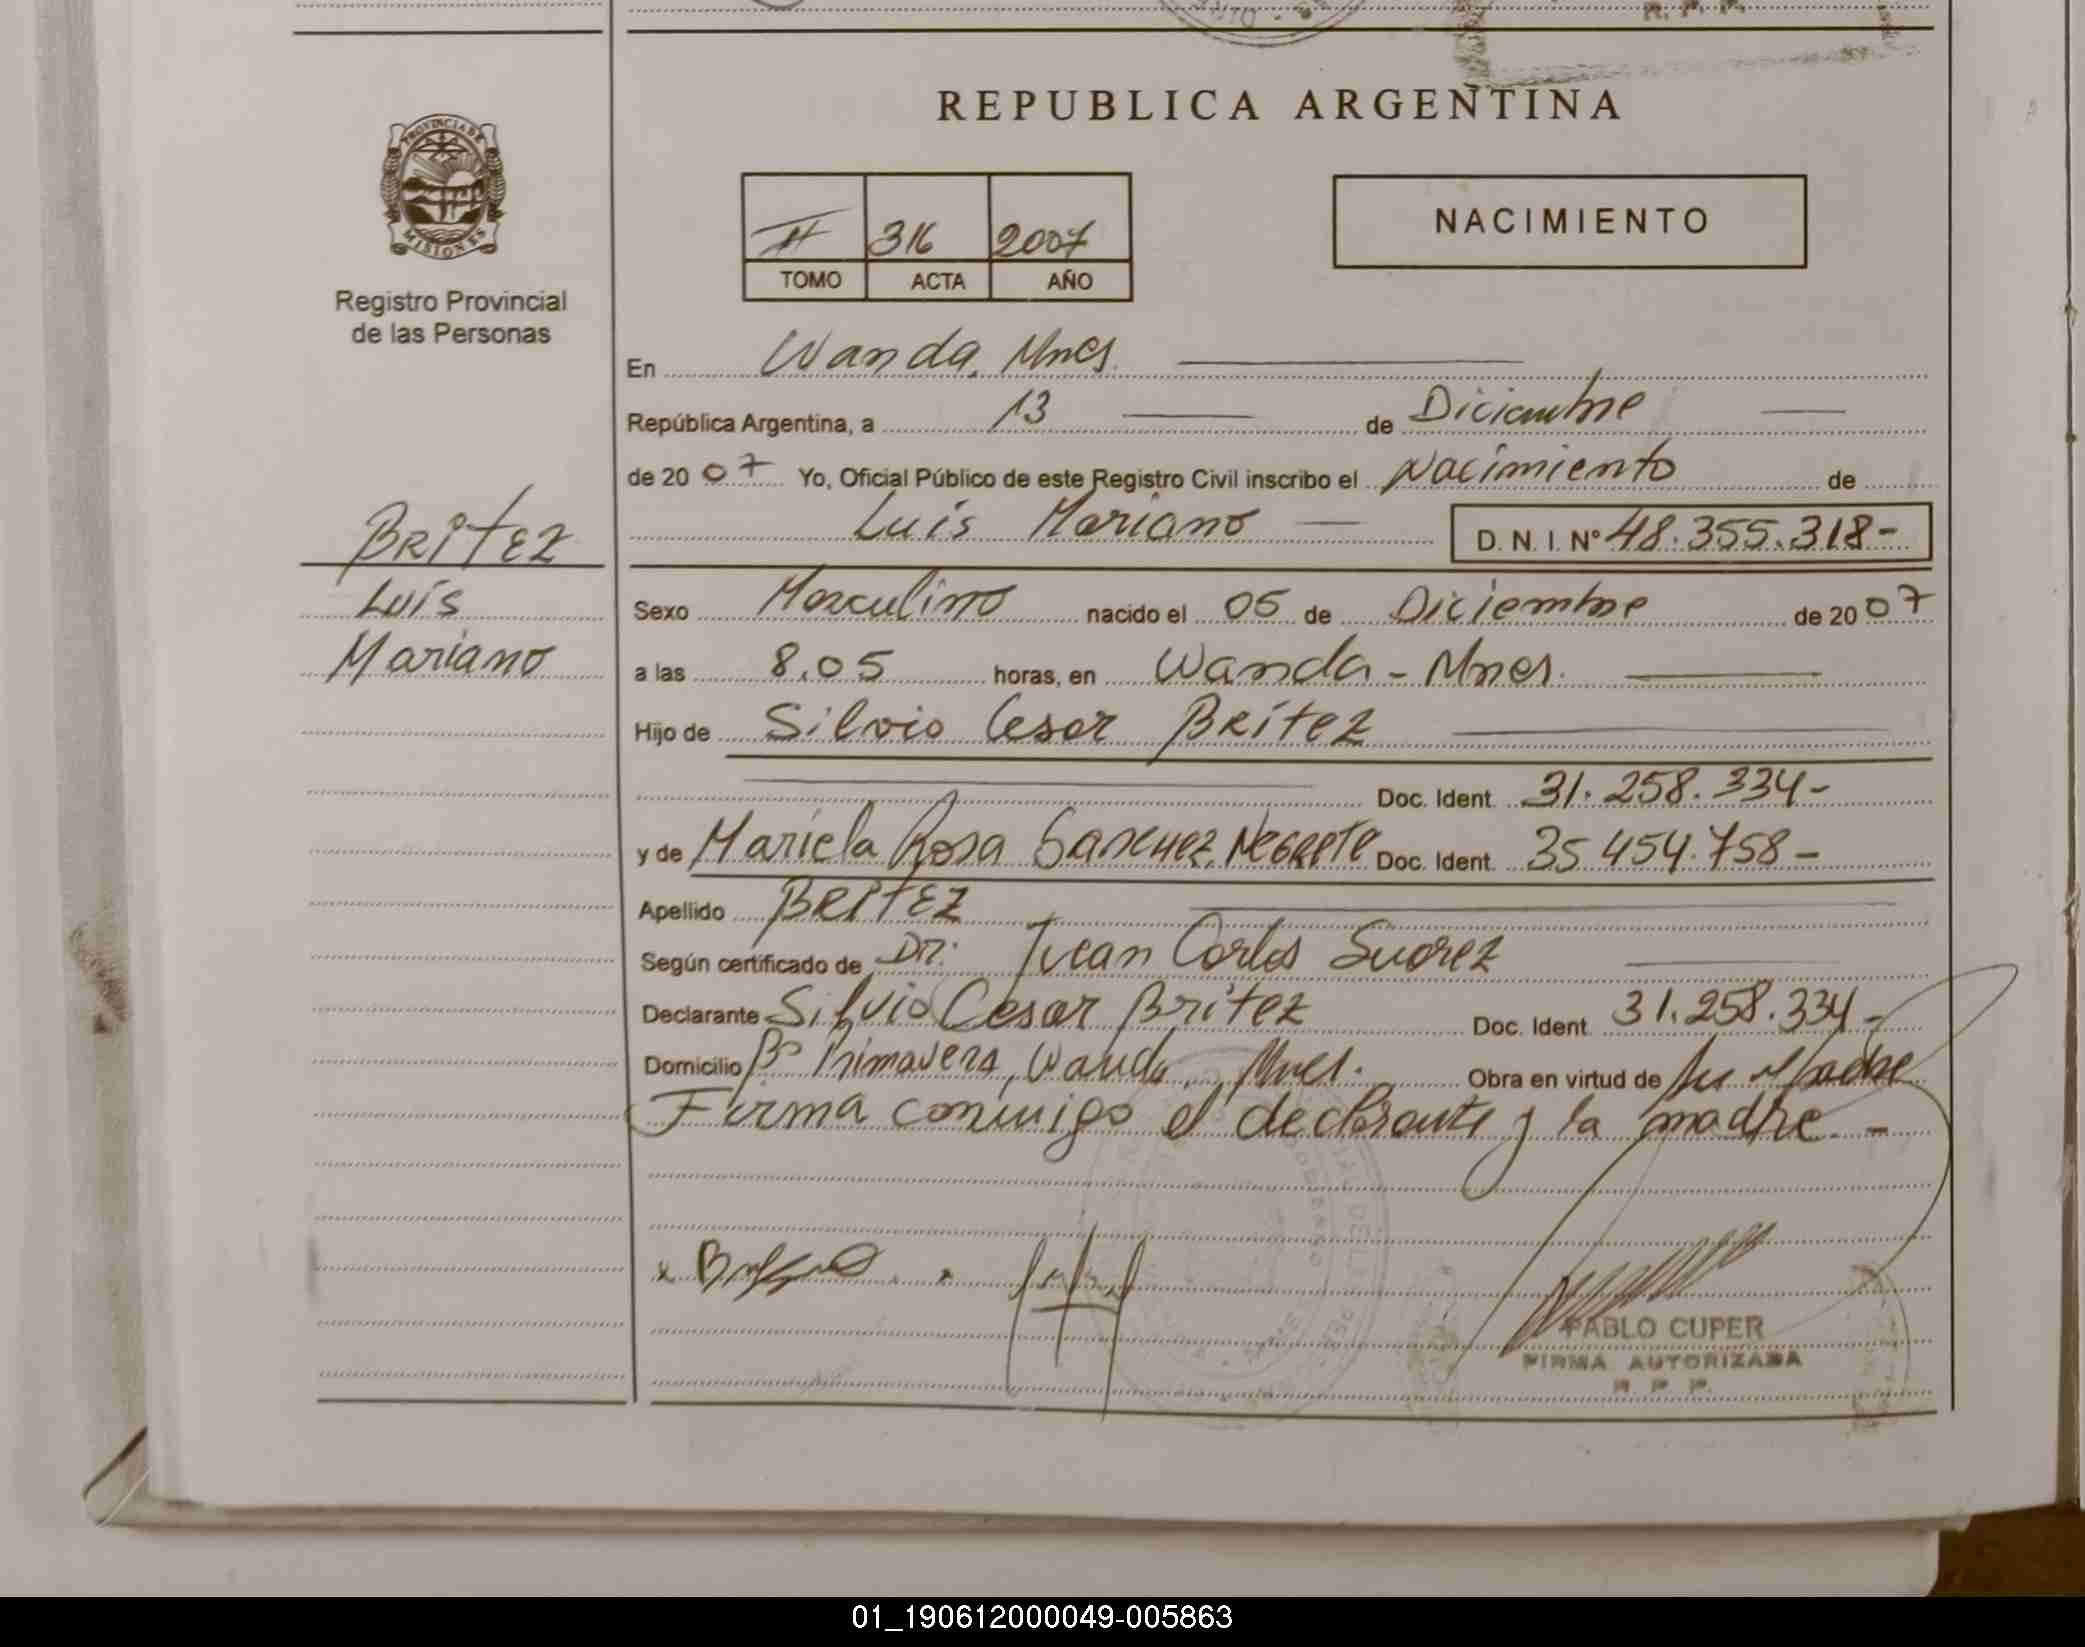 R. P. P.
REPUBLICA ARGENTINA
PROVINCIA DE
MISIONES
Registro Provincial
de las Personas
II 316 2007
TOMO ACTA AÑO
NACIMIENTO
En Wanda, Mnes.
República Argentina, a 13 de Diciembre
de 20 07 Yo, Oficial Público de este Registro Civil inscribo el Nacimiento de
Luis Mariano D. N. I. Nº 48.355.318-
BRITEZ
Luis
Mariano
Sexo Masculino nacido el 05 de Diciembre de 20 07
a las 8,05 horas, en Wanda - Mnes.
Hijo de Silvio Cesar Britez
Doc. Ident. 31.258.334-
y de Mariela Rosa Sanchez Negrete Doc. Ident. 35.454.758-
Apellido BRITEZ
Según certificado de Dr. Juan Carlos Suarez
Declarante Silvio Cesar Britez Doc. Ident. 31.258.334-
Domicilio Bº Primavera, Wanda, Mnes. Obra en virtud de ser Padre
Firma conmigo el declarante y la madre.-
PABLO CUPER
FIRMA AUTORIZADA
R. P. P.
01_190612000049-005863